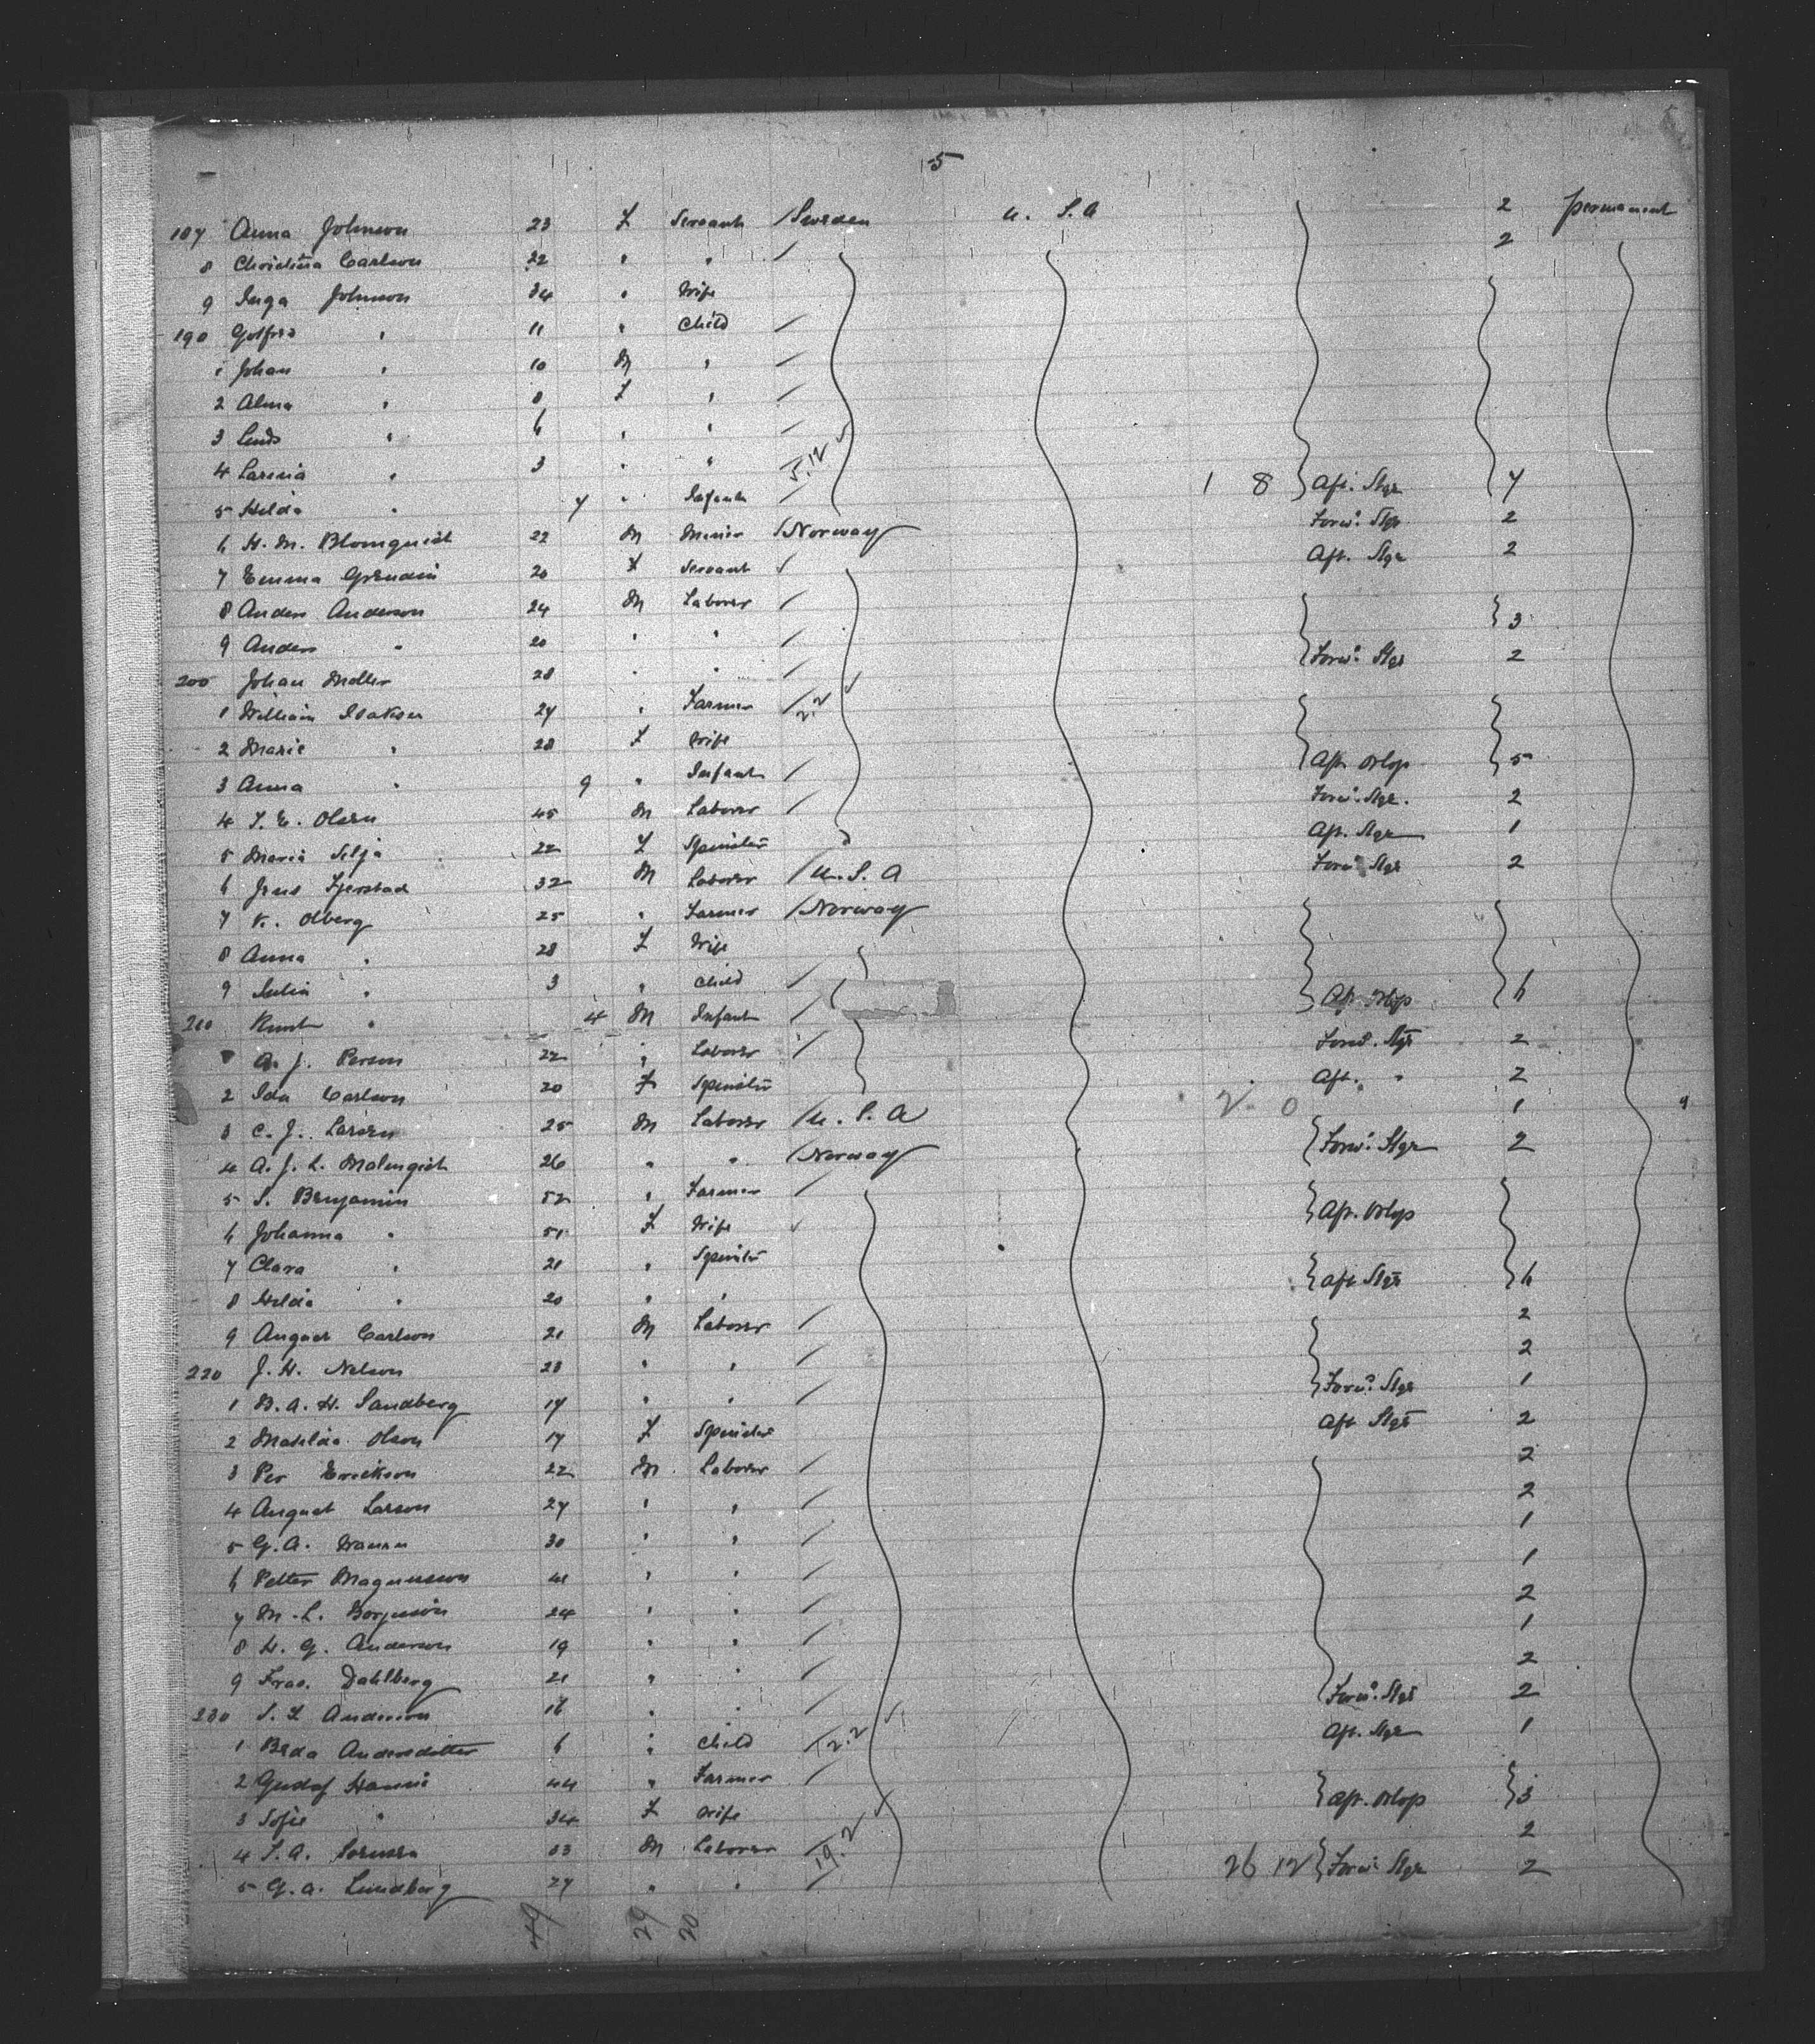 5
187 Anna Johnson 23 F Servant / Sweden U.S.A 2 permanent
8 Christina Carlson 22 " " / 2
9 Inga Johnson 34 " Wife
190 " 11 " Child /
1 Johan " 10 M " /
2 Alma " 8 F " /
3 " 6 " " /
4 " 3 " " 5.12 ✓
5 Hilda " 7 " Infant / 1 8 Aft. Stge 7
6 H. M. Blomquist 22 M Miner / Norway Forwd. Stge 2
7 Emma 20 F Servant ✓ Aft. Stge 2
8 Anders Anderson 24 M Laborer /
9 Anders " 20 " " / 3
200 Johan Moller 28 " " / Forwd. Stge 2
1 William Isaksen 27 " Farmer / 2.2 ✓
2 Marie " 28 F Wife
3 Anna " 9 " Infant / Aft. Orlop 5
4 Olsen 45 M Laborer / Forwd. Stge. 2
5 Maria Silja 22 F Spinster Aft. Stge 1
6 Jens Fjerstad 32 M Laborer / U.S.A Forwd. Stge 2
7 K. Olberg 25 " Farmer / Norway
8 Anna " 28 F Wife
9 " 3 " Child /
210 Knut " 4 M Infant / Aft. Orlop 6
A. J. Person 22 " Laborer / Forwd. Stge 2
2 Ida Carlson 20 F Spinster Aft. " 2
3 C. J. Larsen 25 M Laborer / U.S.A 2 0 1
4 A. J. L. Malmqist 26 " " / Norway Forwd. Stge 2
5 S. Benjamin 52 " Farmer /
6 Johanna " 51 F Wife ✓ Aft. Orlop
7 Clara " 21 " Spinster
8 Hilda " 20 " " Aft. Stge 6
9 August Carlson 21 M Laborer / 2
220 J. H. Nelson 23 " " / 2
1 B. A. H. Sandberg 17 " " / Forwd. Stge 1
2 Matilda Olson 17 F Spinster Aft Stge 2
3 Per Erickson 22 M Laborer / 2
4 August Larson 27 " " / 2
5 G. A. 30 " " / 1
6 Petter Magnusson 41 " " / 1
7 M. L. 24 " " / 2
8 H. G. Anderson 19 " " / 1
9 Fras. Dahlberg 21 " " / 2
230 Anderson " " / Forwd. Stge 2
1 Beda Andersdotter 6 " Child / 2.2 ✓ Aft. Stge 1
2 Gustaf 44 " Farmer /
3 Sofie " 34 F Wife Aft. Orlop 3
4 33 M Laborer 19.2 ✓ 2
5 G. A. Lundberg 27 " " / 26 12 Forwd. Stge 2
49 29 20